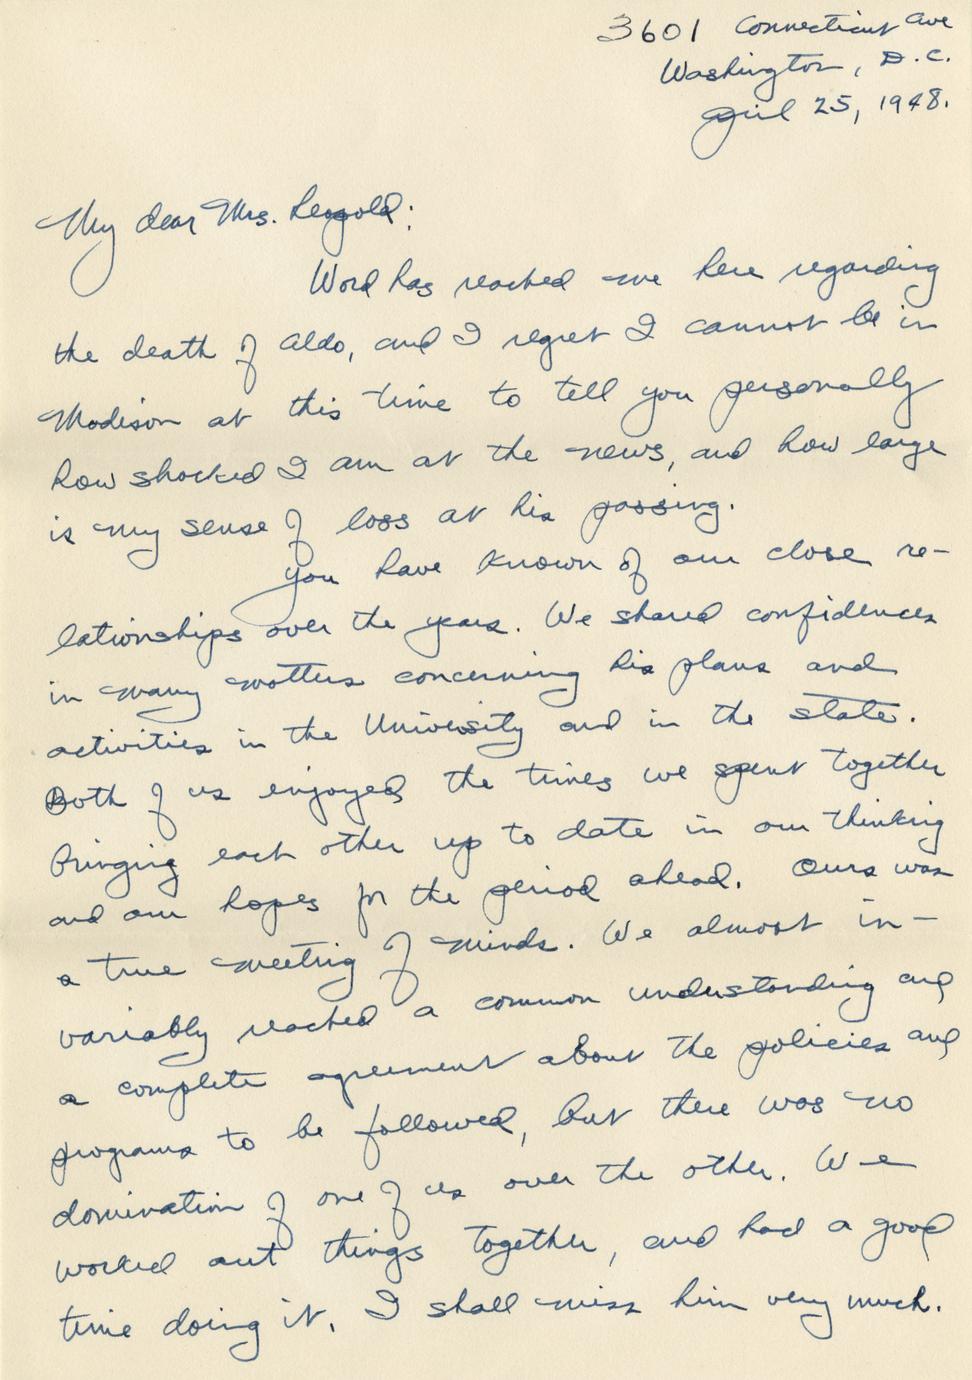 3601 Connecticut Ave
Washington, D.C.
April 25, 1948.
My dear Mrs. Leopold:
Word has reached me here regarding
the death of Aldo, and I regret I cannot be in
Madison at this time to tell you personally
how shocked I am at the news, and how large
is my sense of loss at his passing.
You have known of our close re-
lationships over the years. We shared confidences
in many matters concerning his plans and
activities in the University and in the state.
Both of us enjoyed the times we spent together
bringing each other up to date in our thinking
and our hopes for the period ahead. Ours was
a true meeting of minds. We almost in-
variably reached a common understanding and
a complete agreement about the policies and
programs to be followed, but there was no
domination of one of us over the other. We
worked out things together, and had a good
time doing it. I shall miss him very much.